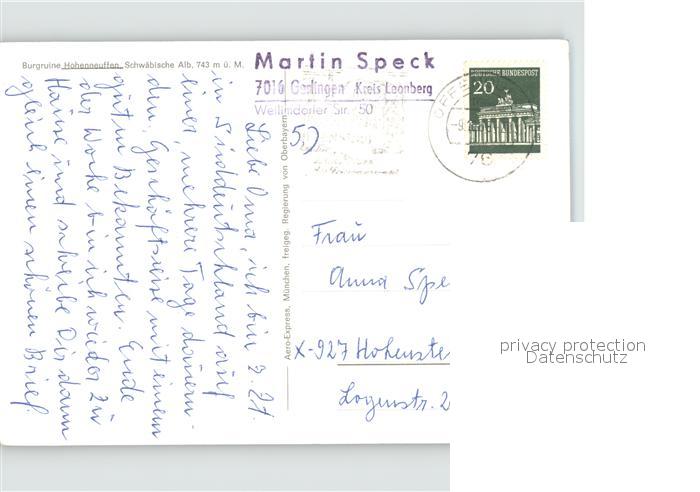 Burgruine Hohenneuffen, Schwäbische Alb, 743 m ü. M.
Martin Speck
7016 Gerlingen Kreis Leonberg
Weilimdorfer Str. 50
DEUTSCHE BUNDESPOST
20
OFFE
Liebe Oma, ich bin z. Zt.
in Süddeutschland auf
einer, mehrere Tage dauern-
den, Geschäftsreise mit einem
guten Bekannten. Ende
der Woche bin ich wieder zu
Hause und schreibe Dir dann
gleich einen schönen Brief.
Aero-Express, München, freigeg. Regierung von Oberbayern
Frau
Anna Spe
X-927 Hohenste
Logenstr. 2
privacy protection
Datenschutz